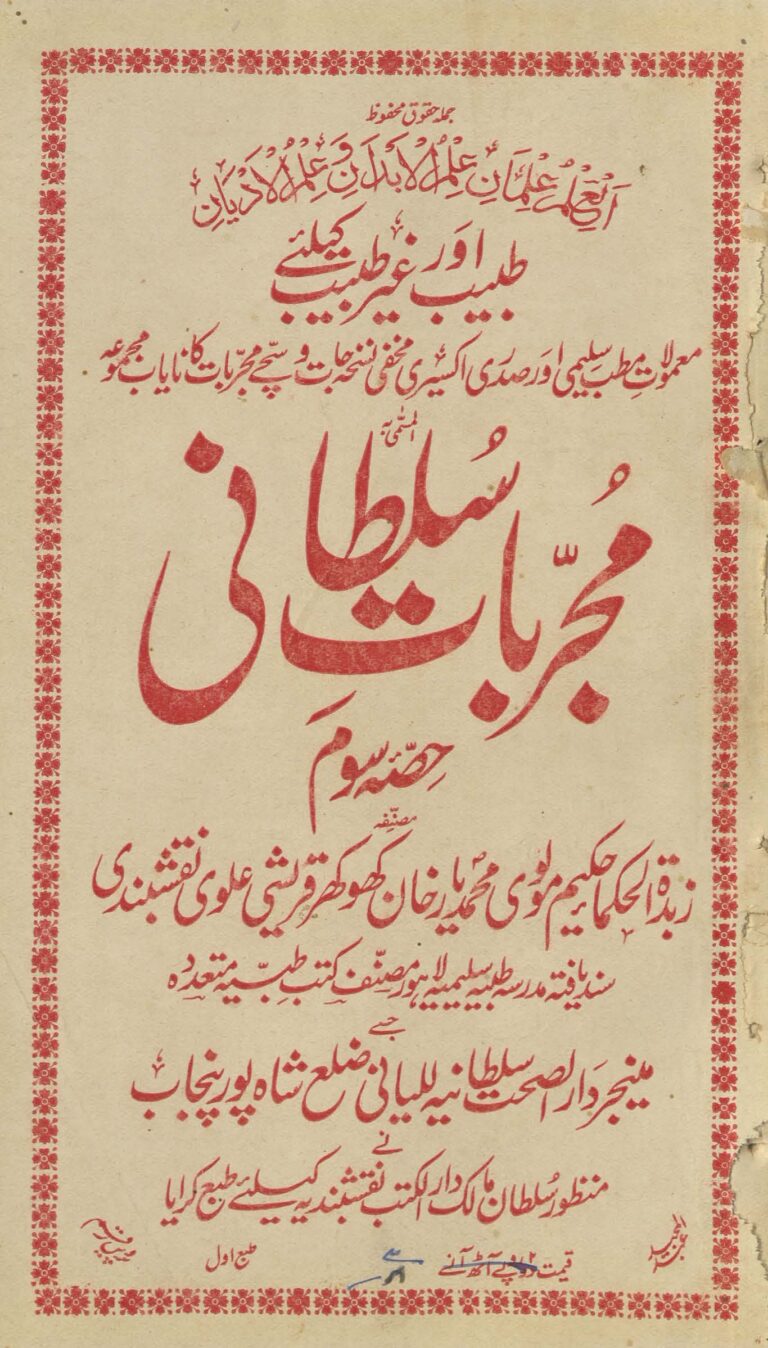 جملہ حقوق محفوظ
اَلْعِلْمُ عِلْمَانِ عِلْمُ الْاَبْدَانِ وَ عِلْمُ الْاَدْیَانِ
طبیب اور غیر طبیب کیلئے
معمولات مطب سلیمی اور صدری اکسیری مخفی نسخہ جات و سچے مجربات کا نایاب مجموعہ
المسمٰی بہ
مُجرّبات سُلطانی
حِصّہ سوم
مصنفہ
زبدۃ الحکما حکیم مولوی محمد یار خان کھوکھر قریشی علوی نقشبندی
سند یافتہ مدرسہ طبیہ سلیمیہ لاہور مصنّف کتب طبیّہ متعددہ
جسے
مینیجر دار الصحت سلطانیہ للیانی ضلع شاہ پور پنجاب
نے
منظور سُلطان مالک دار الکتب نقشبندیہ کیلئے طبع کرایا
قیمت روپے آٹھ آنے
طبع اول